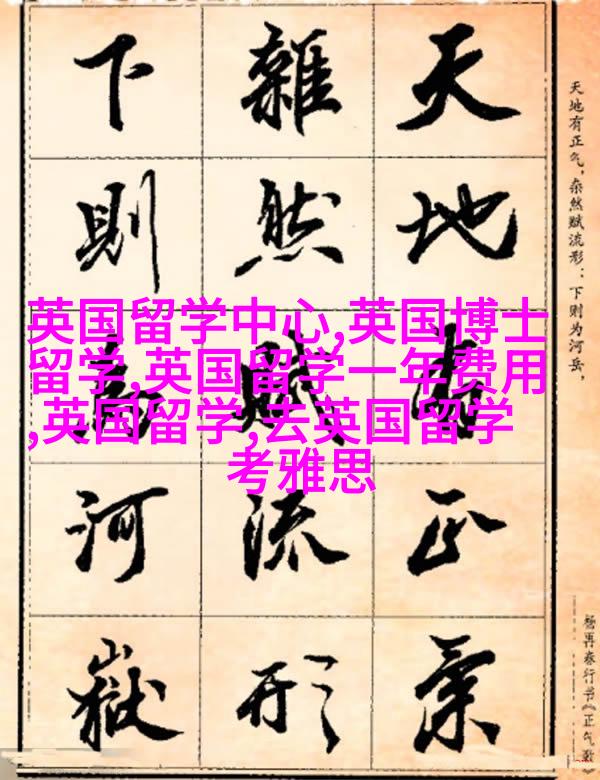 天地有正氣
雜然賦流形
下則為河嶽
天地有正气，杂然赋流形：下则为河岳，
杨再春行书《正气歌》
英国留学中心,英国博士
留学,英国留学一年费用
,英国留学,去英国留学
考雅思